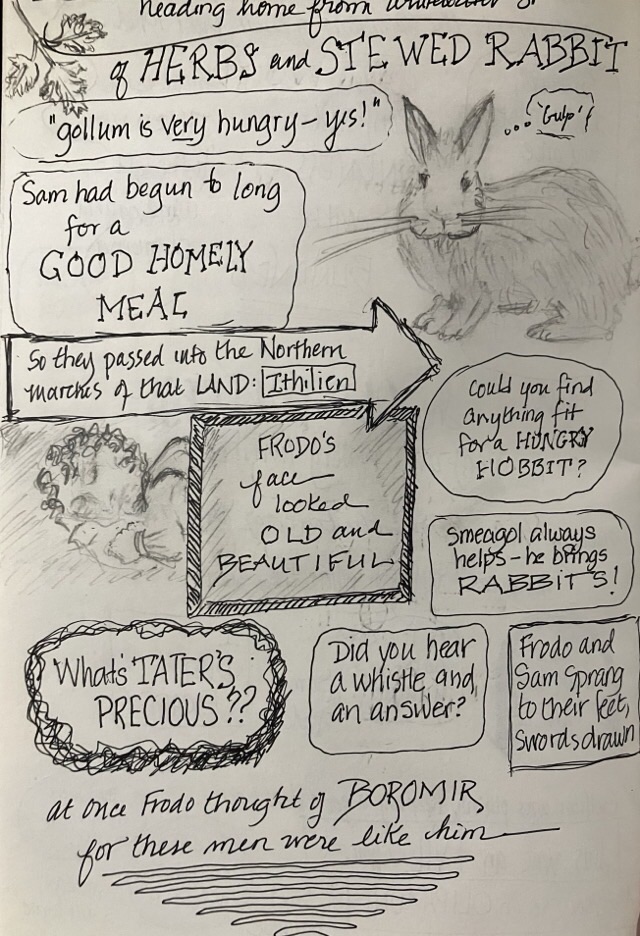 heading home from
of HERBS and STEWED RABBIT
"gollum is very hungry - yes!"
'Gulp'!
Sam had begun to long
for a
GOOD HOMELY
MEAL
So they passed into the Northern
marches of that LAND: Ithilien
Could you find
anything fit
for a HUNGRY
HOBBIT?
FRODO'S
face
looked
OLD and
BEAUTIFUL
Smeagol always
helps - he brings
RABBITS!
What's TATER'S
PRECIOUS??
Did you hear
a whistle and
an answer?
Frodo and
Sam Sprang
to their feet,
Swords drawn
at once Frodo thought of BOROMIR
for these men were like him